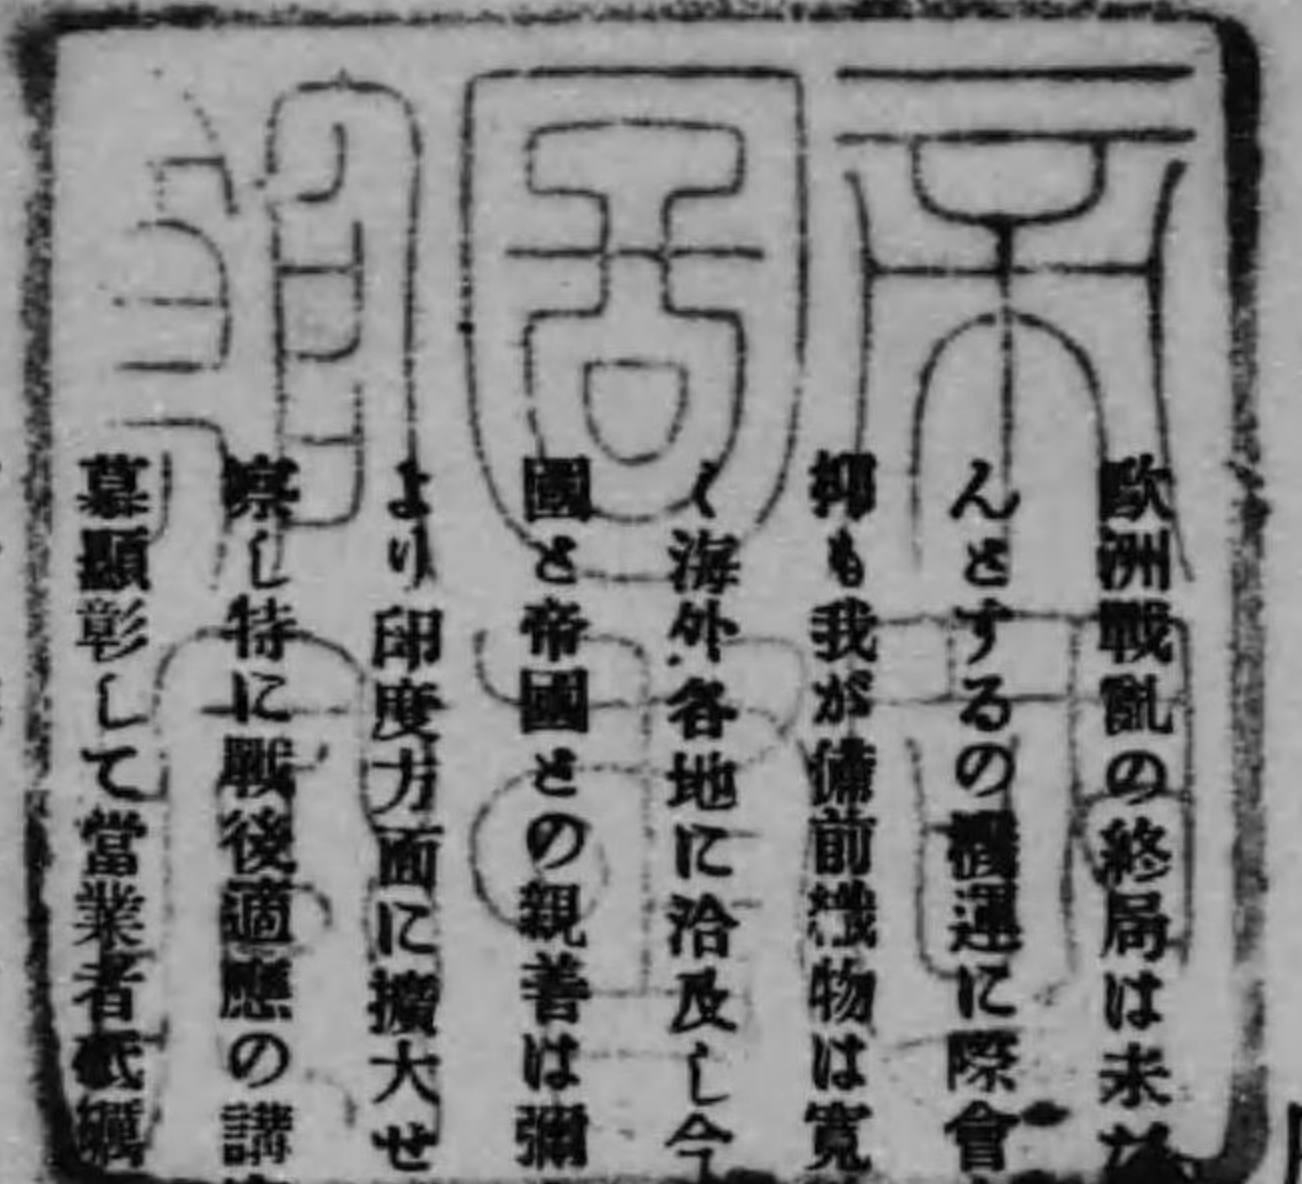 歐洲戰亂の終局は未だ
んとするの機運に際會
抑も我が備前織物は寬
く海外各地に洽及し今
國と帝國との親善は彌
より印度方面に擴大せ
察し特に戰後適應の講
慕顯彰して當業者砥礪
帝國